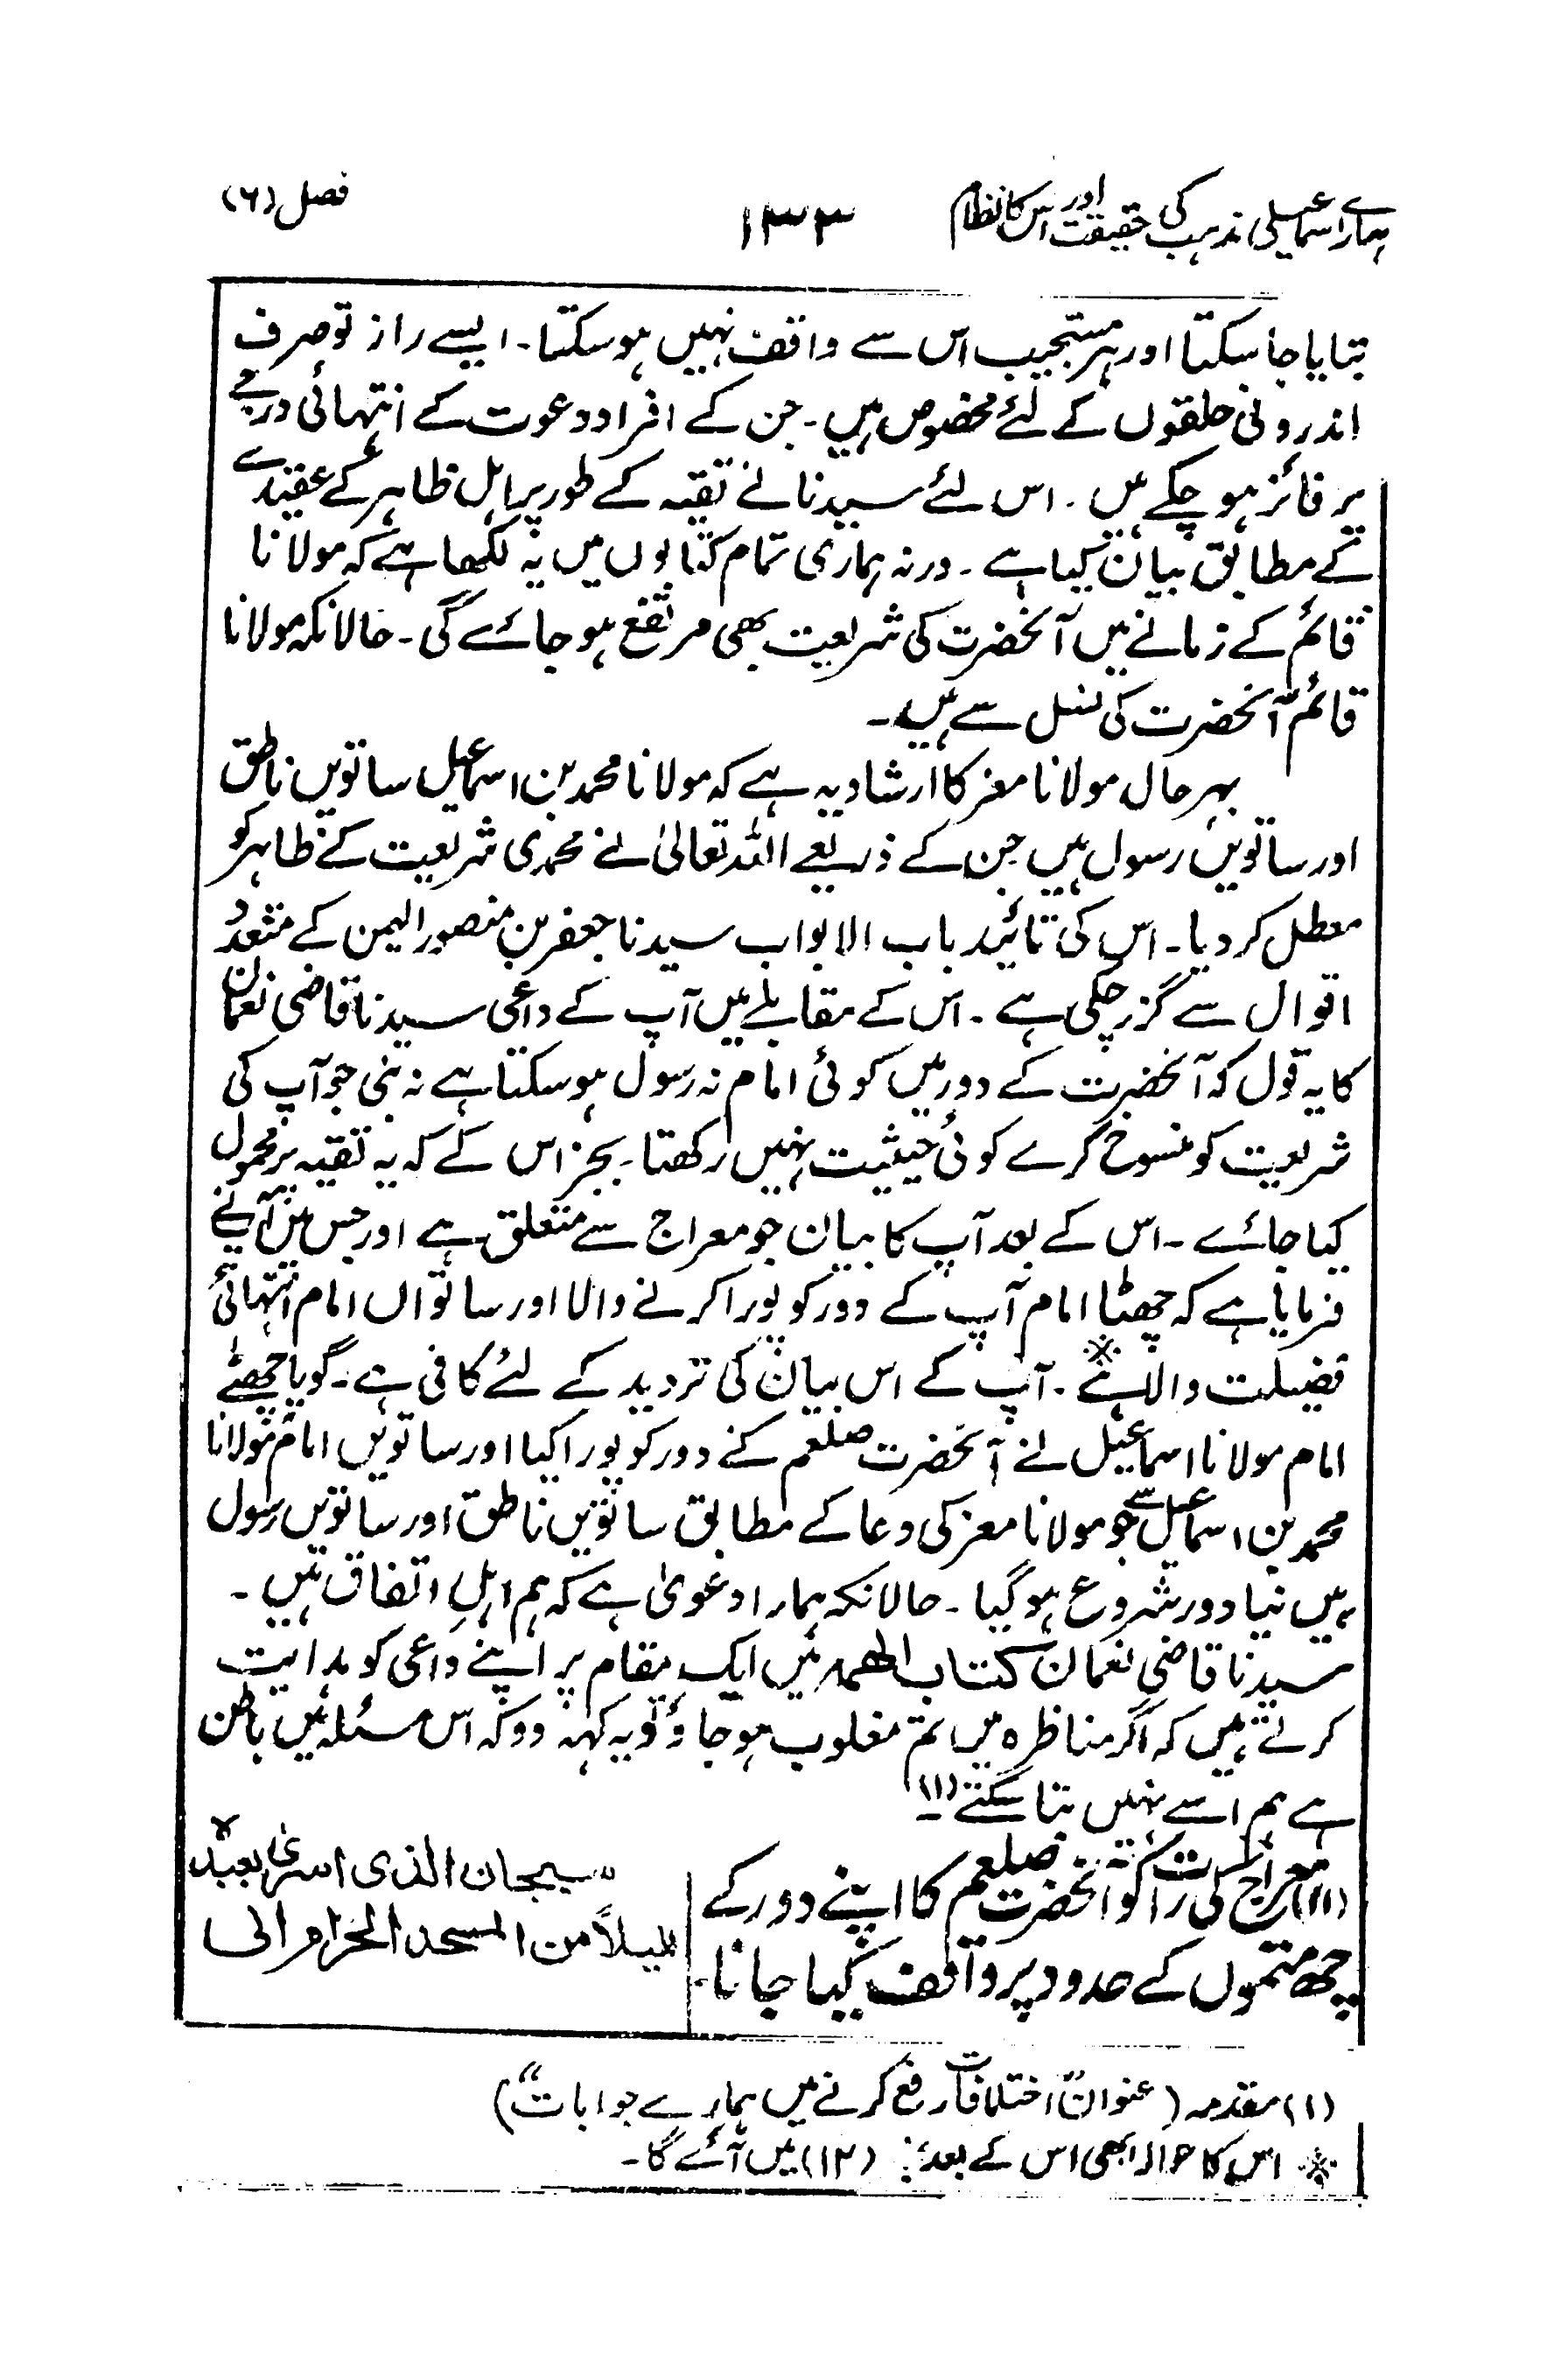 ہمارے اسماعیلی مذہب کی حقیقت اور اس کا نظام
۱۳۳
فصل (۶)
بتایا جا سکتا اور ہر مستجیب اس سے واقف نہیں ہو سکتا۔ ایسے راز تو صرف
اندرونی حلقوں کے لئے مخصوص ہیں۔ جن کے افراد دعوت کے انتہائی درجے
پر فائز ہو چکے ہیں۔ اس لئے سیدنا نے تقیہ کے طور پر اہل ظاہر کے عقیدے
کے مطابق بیان کیا ہے۔ ورنہ ہماری تمام کتابوں میں یہ لکھا ہے کہ مولانا
قائم کے زمانے میں آنحضرت کی شریعت بھی مرتفع ہو جائے گی۔ حالانکہ مولانا
قائم آنحضرت کی نسل سے ہیں۔
بہر حال مولانا معز کا ارشاد یہ ہے کہ مولانا محمد بن اسماعیل ساتویں ناطق
اور ساتویں رسول ہیں جن کے ذریعے اللہ تعالیٰ نے محمدی شریعت کے ظاہر کو
معطل کر دیا۔ اس کی تائید باب الابواب سیدنا جعفر بن منصور الیمن کے متعدد
اقوال سے گزر چکی ہے۔ اس کے مقابلے میں آپ کے داعی سیدنا قاضی نعمان
کا یہ قول کہ آنحضرت کے دور میں کوئی امام نہ رسول ہو سکتا ہے نہ نبی جو آپ کی
شریعت کو منسوخ کرے کوئی حیثیت نہیں رکھتا۔ بجز اس کے کہ یہ تقیہ پر محمول
کیا جائے۔ اس کے بعد آپ کا بیان جو معراج سے متعلق ہے اور جس میں آپ نے
فرمایا ہے کہ چھٹا امام آپ کے دور کو پورا کرنے والا اور ساتواں امام انتہائی
فضیلت والا ہے※۔ آپ کے اس بیان کی تردید کے لئے کافی ہے۔ گویا چھٹے
امام مولانا اسماعیل نے آنحضرت صلعم کے دور کو پورا کیا اور ساتویں امام مولانا
محمد بن اسماعیل سے جو مولانا معز کی دعا کے مطابق ساتویں ناطق اور ساتویں رسول
ہیں نیا دور شروع ہو گیا۔ حالانکہ ہمارا دعویٰ ہے کہ ہم اہلِ اتفاق ہیں۔
سیدنا قاضی نعمان کتاب الھمہ میں ایک مقام پر اپنے داعی کو ہدایت
کرتے ہیں کہ اگر مناظرہ میں تم مغلوب ہو جاؤ تو یہ کہہ دو کہ اس مسئلہ میں باطن
ہے ہم اسے نہیں بتا سکتے (۱)۔
(۱۱) معراج کی رات کو آنحضرت صلعم کا اپنے دور کے
چھ متموں کے حدود پر واقف کیا جانا۔
"سبحان الذی اسریٰ بعبدہ
لیلاً من المسجد الحرام الی
(۱) مقدمہ (عنوان "اختلافات رفع کرنے میں ہمارے جوابات")
※ اس کا حوالہ ابھی اس کے بعد: (۱۲) میں آئے گا۔